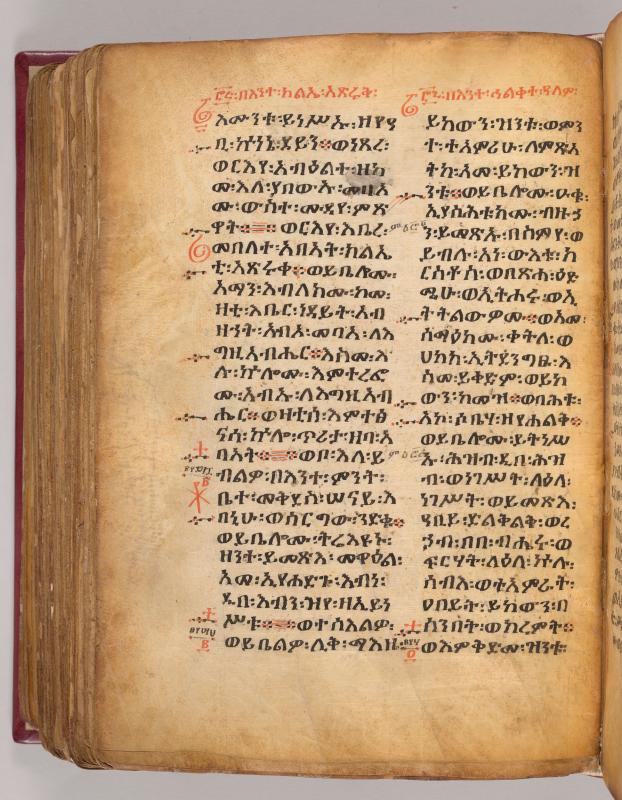 ፸፩፡በእንተ፡ክልኤ፡እጽሩቅ፡
እሙንቱ፡ይነሥኡ፡ዘየዓ
ቢ፡ኵነኔ፡ደይን።ወነጸረ፡
ወርእየ፡አብዕልተ፡ዘከ
መ፡እለ፡ያበውኡ፡መባአ
ሙ፡ውስተ፡ሙዳየ፡ምጽ
ዋት።ወርእየ፡እቤረ፡
መበለተ፡አብአት፡ክልኤ
ተ፡እጽሩቀ።ወይቤሎሙ፡
አማን፡እብለክሙ፡ከመ፡
ዛቲ፡እቤር፡ነዳይት፡አብ
ዝኀት፡አብኦ፡መባእ፡ለእ
ግዚአብሔር።እስመ፡እ
ሉ፡ኵሎሙ፡እምተረፎ
ሙ፡አብኡ፡ለእግዚአብ
ሔር።ወዛቲሰ፡እምተፅ
ናሳ፡ኵሎ፡ጥሪታ፡ዘባ፡አ
ብአት።ወቦ፡እለ፡ይ
ብልዎ፡በእንተ፡ምንት፡
ቤተ፡መቅደስ፡ሠናይ፡እ
በኒሁ፡ወሰርግው፡ንድቁ።
ወይቤሎሙ፡ትሬእዩኑ፡
ዘንተ፡ይመጽእ፡መዋዕል፡
አመ፡ኢየሐድጉ፡እብነ፡
ዲበ፡እብን፡ዝየ፡ዘኢይነ
ሥቱ።ወተስእልዎ፡
ወይቤልዎ፡ሊቅ፡ማእዜ
፸፪፡በእንተ፡ኅልቀተ፡ዓለም፡
ይከውን፡ዝንቱ፡ወምን
ት፡ተአምሪሁ፡ለምጽአ
ትከ፡አመ፡ይከውን፡ዝ
ንቱ።ወይቤሎሙ፡ዑቁ፡
ኢያስሕቱክሙ፡ብዙኃ
ን፡ይመጽኡ፡በስምየ፡ወ
ይብሉ፡አነ፡ውእቱ፡ክ
ርስቶስ፡ወበጽሐ፡ዕድ
ሜሁ፡ወኢትሖሩ፡ወኢ
ትትልውዎሙ።ወአመ፡
ሰማዕክሙ፡ቀትለ፡ወ
ሀከከ፡ኢትደንግፁ፡እ
ስመ፡ይቀድም፡ወይከ
ውን፡ከመዝ።ወባሕቱ፡
አኮ፡ሶቤሃ፡ዘየሐልቅ።
ወይቤሎሙ፡ይትነሥ
እ፡ሕዝብ፡ዲበ፡ሕዝ
ብ፡ወነገሥት፡ላዕለ፡
ነገሥት፡ወይመጽእ፡
ዓቢይ፡ድልቅልቅ፡ወረ
ኃብ፡በበ፡ብሔሩ፡ወ
ፍርሃት፡ላዕለ፡ኵሉ፡
ሰብእ፡ወተአምራት፡
ዐበይት፡ይከውን፡በ
ሰንበት፡ወክረምት።
ወእምቅድመ፡ዝንቱ፡